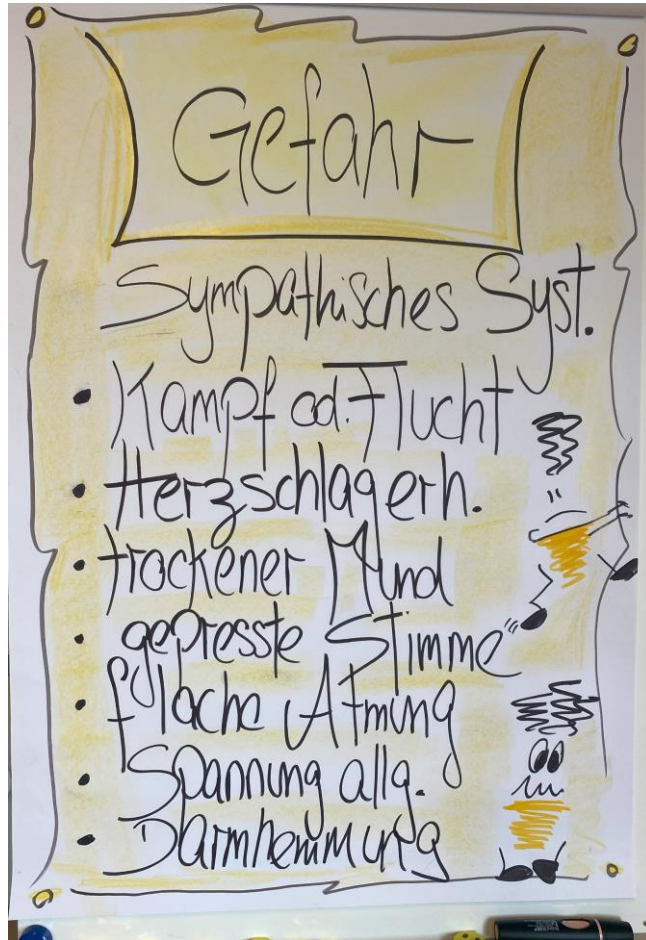 Gefahr
Sympathisches Syst.
• Kampf od. Flucht
• Herzschlagerh.
• trockener Mund
• gepresste Stimme
• flache Atmung
• Spannung allg.
• Darmhemmung